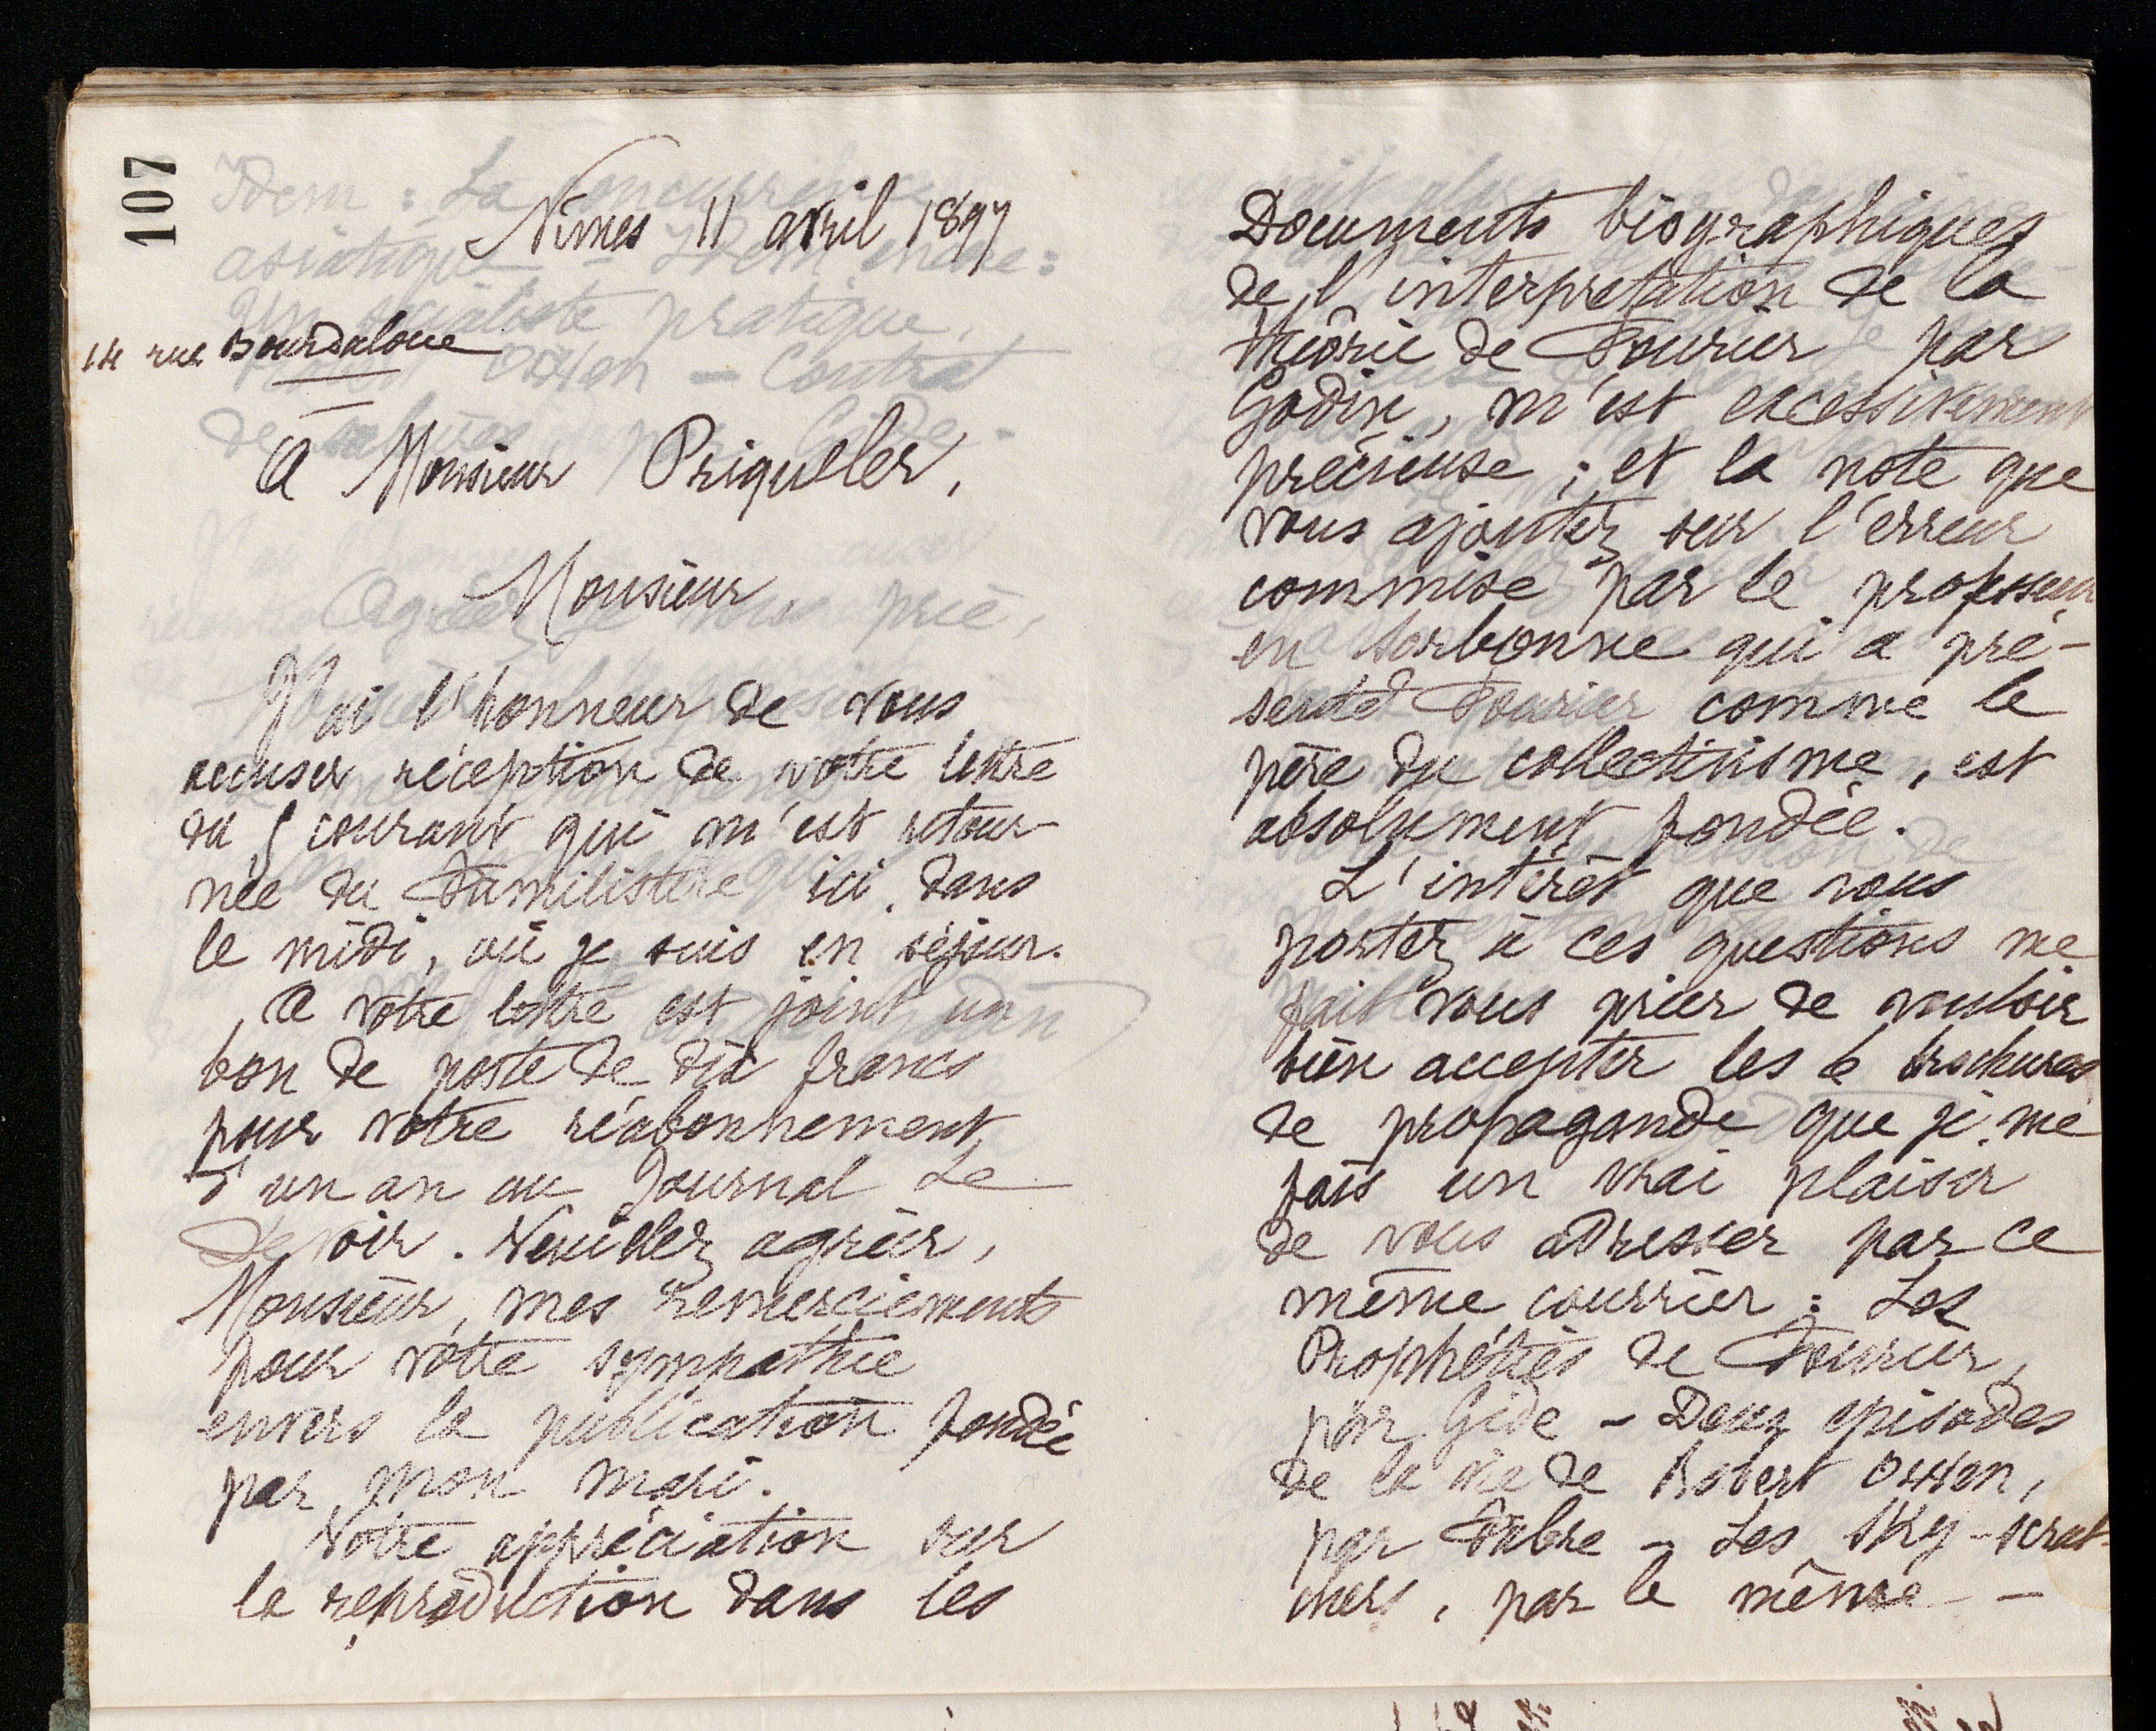 107
Nîmes 11 avril 1897
14 rue Bourdaloue
A Monsieur Priqueler,
Monsieur
J'ai l'honneur de vous
accuser réception de votre lettre
du 5 courant qui m'est retour-
née du Familistère ici dans
le midi, où je suis en séjour.
A votre lettre est joint un
bon de poste de dix francs
pour votre réabonnement
d'un an au Journal Le
Devoir. Veuillez agréer,
Monsieur, mes remerciements
pour votre sympathie
envers la publication fondée
par mon mari.
Votre appréciation sur
la reproduction dans les
Documents biographiques
de l'interprétation de la
théorie de Fourier par
Godin, m'est excessivement
précieuse ; et la note que
vous ajoutez sur l'erreur
commise par le professeur
en Sorbonne qui a pré-
senté Fourier comme le
père du collectivisme, est
absolument fondée.
L'intérêt que vous
portez à ces questions me
fait vous prier de vouloir
bien accepter les 6 brochures
de propagande que je me
fais un vrai plaisir
de vous adresser par ce
même courrier : Les
Prophéties de Fourier,
par Gide – Deux épisodes
de la vie de Robert Owen,
par Fabre – Les Sky-scrat-
chers, par le même –